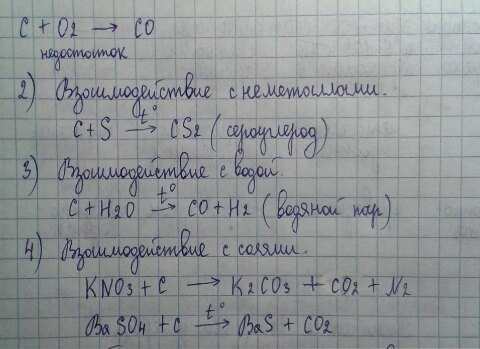 C + O2 → CO
недостаток
2) Взаимодействие с неметаллами.
C + S t°→ CS2 (сероуглерод)
3) Взаимодействие с водой.
C + H2O t°→ CO + H2 (водяной пар)
4) Взаимодействие с солями.
KNO3 + C → K2CO3 + CO2 + N2
BaSO4 + C t°→ BaS + CO2